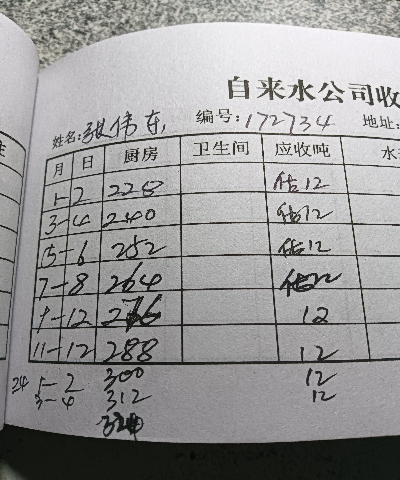 自来水公司收
姓名:张伟东 编号:172734 地址:
月 日 厨房 卫生间 应收吨 水
1-2 228 估12
3-4 240 估12
5-6 252 估12
7-8 264 估12
9-12 276 12
11-12 288 12
24 1-2 300 12
3-4 312 12